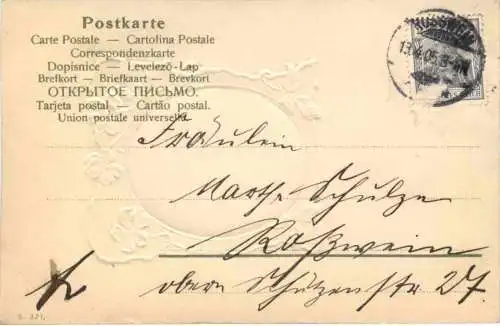 Postkarte
Carte Postale — Cartolina Postale
Correspondenzkarte
Dopisnice — Levelező-Lap
Brefkort — Briefkaart — Brevkort
ОТКРЫТОЕ ПИСЬМО.
Tarjeta postal — Cartão postal.
Union postale universelle
Fräulein
Marth. Schulze
Roßwein
obere Schützenstr 27.